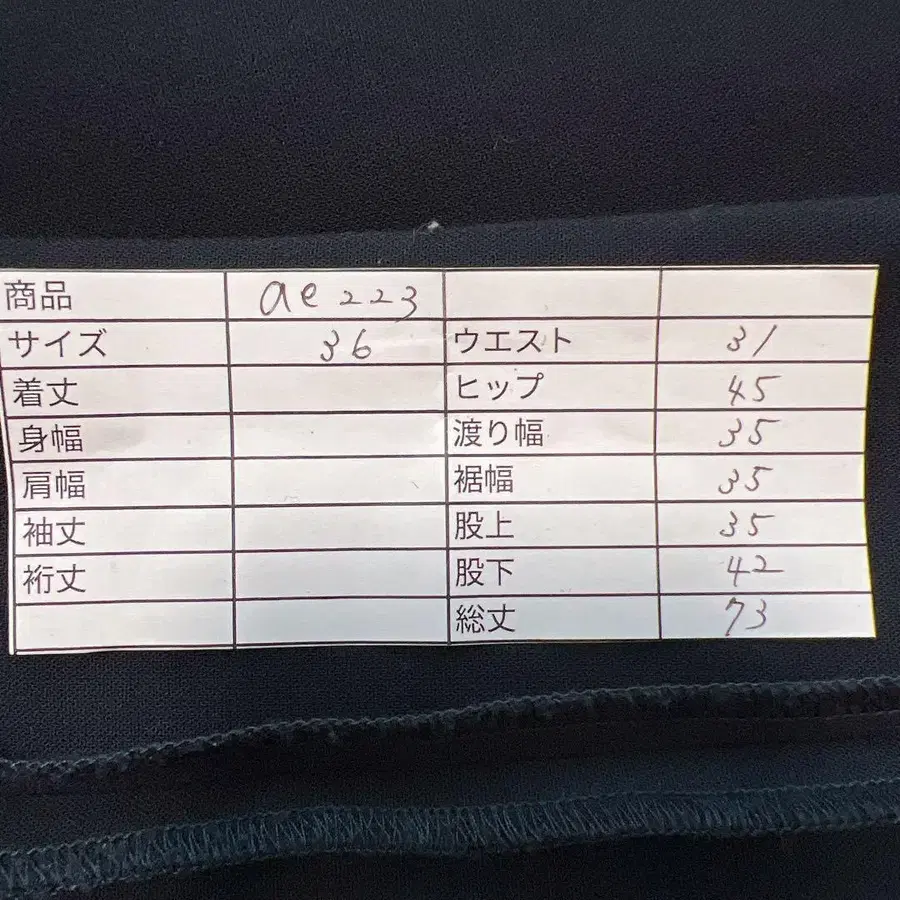 商品 ae223
サイズ 36 ウエスト 31
着丈 ヒップ 45
身幅 渡り幅 35
肩幅 裾幅 35
袖丈 股上 35
裄丈 股下 42
総丈 73